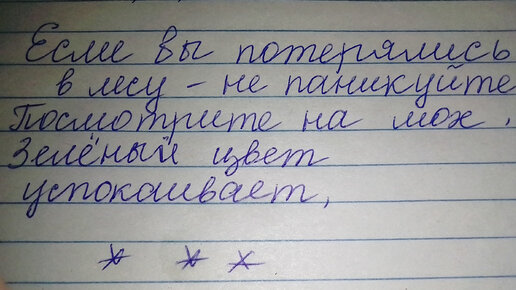 Если вы потерялись
в лесу - не паникуйте
Посмотрите на мох.
Зелёный цвет
успокаивает,
* * *